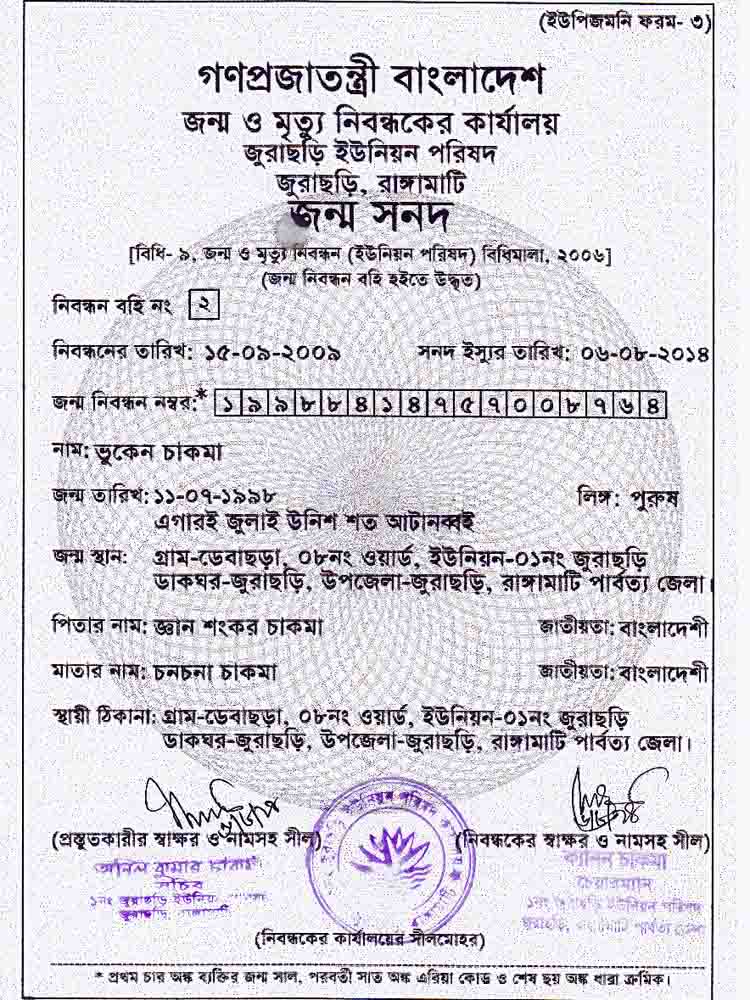 (ইউপিজমনি ফরম- ৩)
গণপ্রজাতন্ত্রী বাংলাদেশ
জন্ম ও মৃত্যু নিবন্ধকের কার্যালয়
জুরাছড়ি ইউনিয়ন পরিষদ
জুরাছড়ি, রাঙ্গামাটি
জন্ম সনদ
[বিধি- ৯, জন্ম ও মৃত্যু নিবন্ধন (ইউনিয়ন পরিষদ) বিধিমালা, ২০০৬]
(জন্ম নিবন্ধন বহি হইতে উদ্ধৃত)
নিবন্ধন বহি নং ২
নিবন্ধনের তারিখ: ১৫-০৯-২০০৯ সনদ ইস্যুর তারিখ: ০৬-০৮-২০১৪
জন্ম নিবন্ধন নম্বর:* ১৯৯৮৮৪১৪৭৫৭০০৮৭৬৪
নাম: ভুকেন চাকমা
জন্ম তারিখ: ১১-০৭-১৯৯৮ লিঙ্গ: পুরুষ
এগারই জুলাই উনিশ শত আটানব্বই
জন্ম স্থান: গ্রাম-ডেবাছড়া, ০৮নং ওয়ার্ড, ইউনিয়ন-০১নং জুরাছড়ি
ডাকঘর-জুরাছড়ি, উপজেলা-জুরাছড়ি, রাঙ্গামাটি পার্বত্য জেলা।
পিতার নাম: জ্ঞান শংকর চাকমা জাতীয়তা: বাংলাদেশী
মাতার নাম: চনচনা চাকমা জাতীয়তা: বাংলাদেশী
স্থায়ী ঠিকানা: গ্রাম-ডেবাছড়া, ০৮নং ওয়ার্ড, ইউনিয়ন-০১নং জুরাছড়ি
ডাকঘর-জুরাছড়ি, উপজেলা-জুরাছড়ি, রাঙ্গামাটি পার্বত্য জেলা।
(প্রস্তুতকারীর স্বাক্ষর ও নামসহ সীল) (নিবন্ধকের স্বাক্ষর ও নামসহ সীল)
অনিল কুমার চাকমা
সচিব
১নং জুরাছড়ি ইউনিয়ন
জুরাছড়ি,
ক্যানন চাকমা
চেয়ারম্যান
১নং জুরাছড়ি ইউনিয়ন পরিষদ
জুরাছড়ি, পার্বত্য জেলা
(নিবন্ধকের কার্যালয়ের সীলমোহর)
* প্রথম চার অঙ্ক ব্যক্তির জন্ম সাল, পরবর্তী সাত অঙ্ক এরিয়া কোড ও শেষ ছয় অঙ্ক ধারা ক্রমিক।